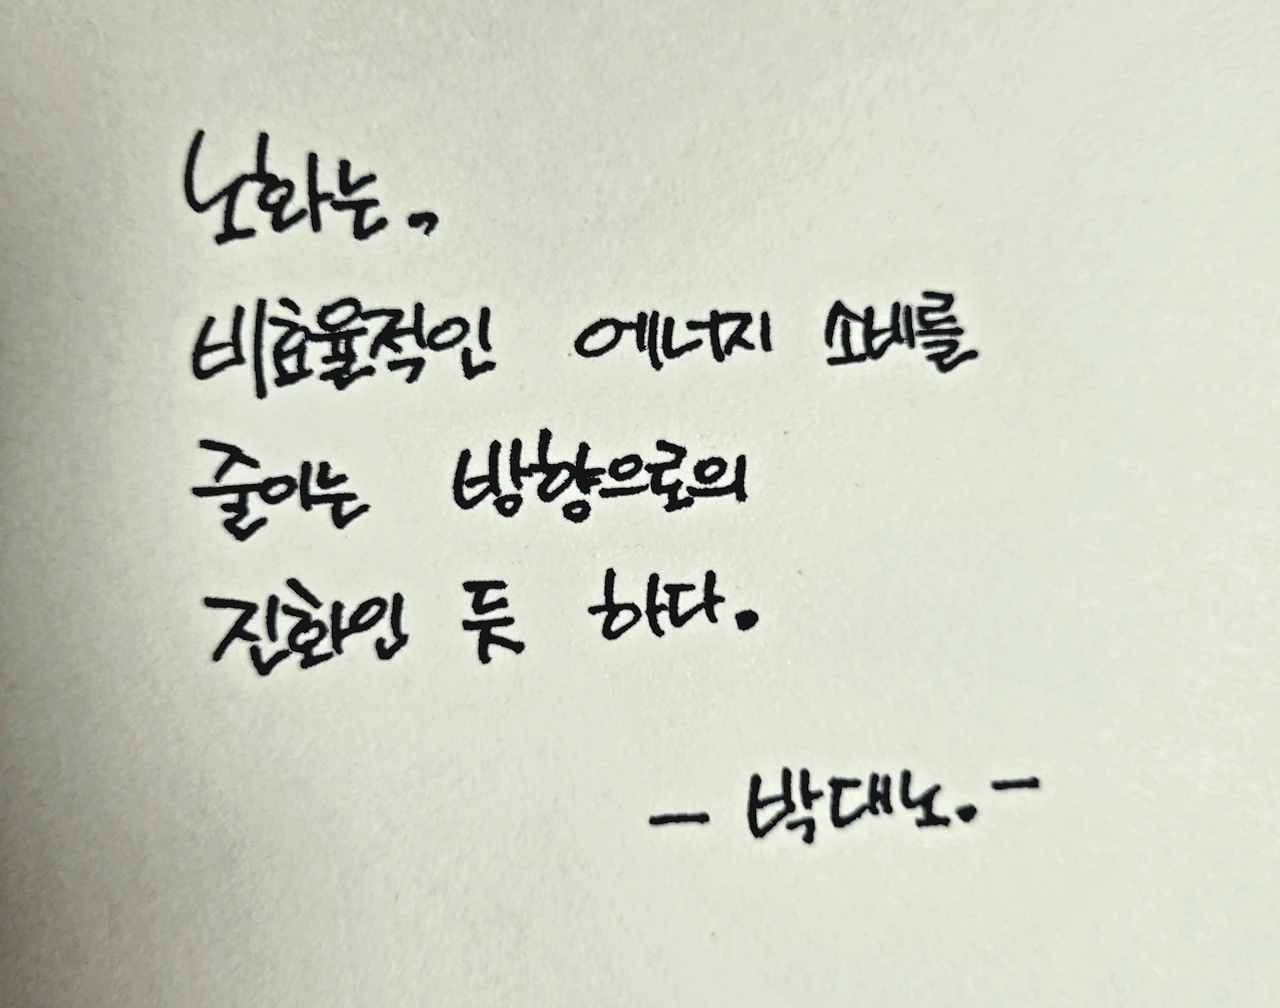 노화는,
비효율적인 에너지 소비를
줄이는 방향으로의
진화인 듯 하다.
- 박대노. -